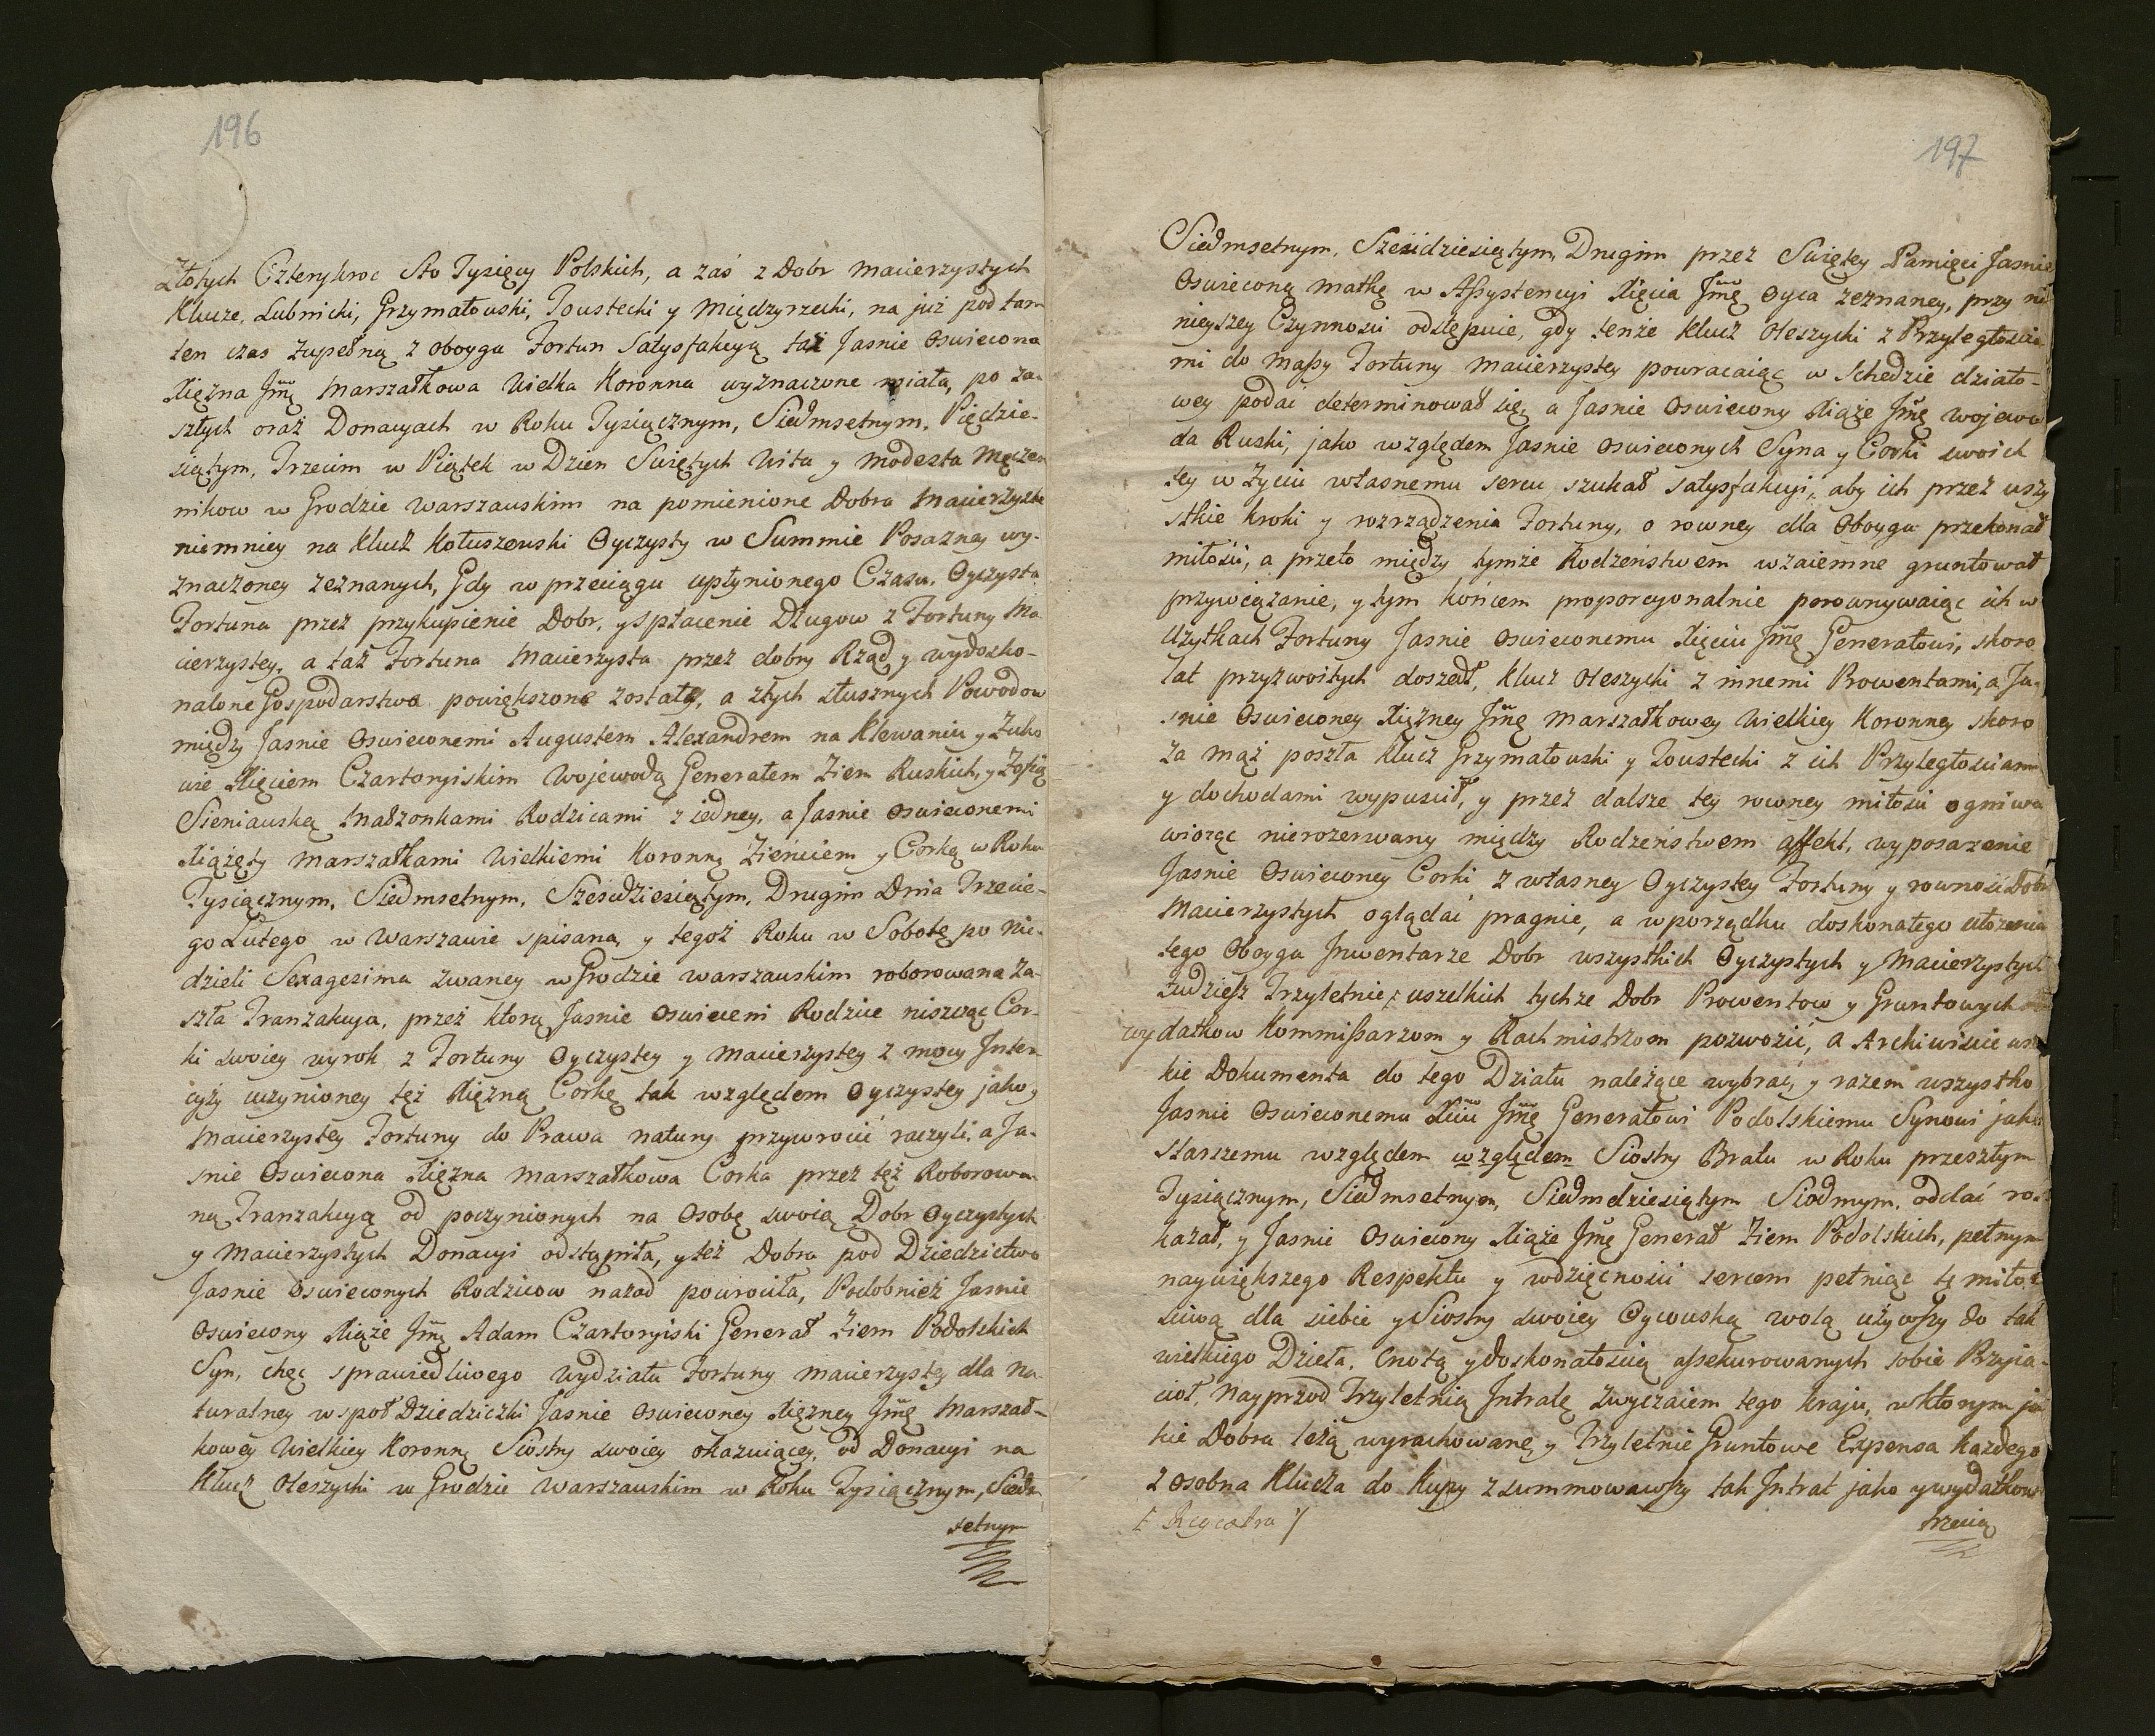 196
Złotych Czterykroc Sto Tysięcy Polskich, a zaś z Dobr Macierzystych
Klucze, Lubnicki, Grzymałowski, Toustecki y Międzyrzecki, na już pod tam
ten czas zupełną z oboyga Fortun Satysfakcyą taż Jasnie Oswiecona
Xiężna Jmę Marszałkowa Wielka Koronna wyznaczone miała, po za-
szłych oraz Donacyach w Roku Tysiącznym, Siedmsetnym, Pięćdzie-
siątym, Trzecim w Piątek w Dzien Swiętych Wita y Modesta Męczen
nikow w Grodzie Warszawskim na pomienione Dobra Macierzyste
niemniey na Klucz Kołuszewski Oyczysty w Summie Posazney wy-
znaczoney zeznanych, Gdy w przeciągu upłynionego Czasu, Oyczysta
Fortuna przez przykupienie Dobr, y spłacenie Długow z Fortuny Ma
cierzystey, a taż Fortuna Macierzysta przez dobry Rząd y wydosko-
nalone Gospodarstwo powiększone zostały, a z tych słusznych Powodow
między Jasnie Oswieconemi Augustem Alexandrem na Klewaniu y Żuko
wie Xięciem Czartoryiskim Wojewodą Generałem Ziem Ruskich, y Zofią
Sieniawską Małżonkami Rodzicami z iedney, a Jasnie Oswieconemi
Xiążęty Marszałkami Wielkiemi Koronną Zieńciem y Corką w Roku
Tysiącznym, Siedmsetnym, Szescdziesiątym, Drugim Dnia Trzecie-
go Lutego w Warszawie spisana, y tegoż Roku w Sobotę po Nie-
dzieli Sexagesima zwaney w Grodzie Warszawskim roborowana za-
szła Tranzakcya, przez którą Jasnie Oswieceni Rodzice niszcząc Cor-
ki swoiey wyrok z Fortuny Oyczystey y Macierzystey z mocy Inter
cyzy uczynioney też Xiężną Corkę tak względem Oyczystey jako y
Macierzystey Fortuny do Prawa natury przywrocić raczyli, a Ja-
snie Oswiecona Xiężna Marszałkowa Corka przez też Roborowa-
ną Tranzakcyą od poczynionych na Osobę swoią Dobr Oyczystych
y Macierzystych Donacyi odstąpiła, y też Dobra pod Dziedzictwo
Jasnie Oswieconych Rodzicow nazad powrociła, Podobnież Jasnie
Oswiecony Xiąże Jmę Adam Czartoryiski Generał Ziem Podolskich
Syn, chęć sprawiedliwego wydziału Fortuny Macierzystey dla Na-
turalney wspoł Dziedziczki Jasnie Oswieconey Xiężney Jmę Marszał-
kowey Wielkiey Koronney Siostry swoiey okazuiącey, od Donacyi na
Klucz Oleszycki w Grodzie Warszawskim w Roku Tysiącznym, Siedm
setnym
197
Siedmsetnym, Szescdziesiątym, Drugim przez Swiętey Pamięci Jasnie
Oswieconą Matkę w Assystencyi Xięcia Jmę Oyca zeznaney, przy ni
nieyszey Czynnosci odstępuie, gdy tenże Klucz Oleszycki z Przyległościa-
mi do Massy Fortuny Macierzystey powracaiąc w Schedzie działo-
wey podać determinował się, a Jasnie Oswiecony Xiąże Jmę Wojewo
da Ruski, jako względem Jasnie Oswieconych Syna y Corki swoich
tey w życiu własnemu sercu szukał satysfakcyi, aby ich przez wszy
stkie kroki y rozrządzenia Fortuny, o rowney dla Oboyga przekonał
miłości, a przeto między tymże Rodzeństwem wzaiemne gruntował
przywiązanie, y tym końcem proporcyonalnie porownywaiąc ich w
Użytkach Fortuny Jasnie Oswieconemu Xięciu Jmę Generałowi, skoro
lat przyzwoitych doszedł, Klucz Oleszycki z innemi Prowentami, a Ja-
snie Oswieconey Xiężney Jmę Marszałkowey Wielkiey Koronney skoro
za mąż poszła Klucz Grzymałowski y Toustecki z ich Przyległosciami
y dochodami wypuścił, y przez dalsze tey rowney miłości ogniwa
wiorąc nierozerwany między Rodzeństwem affekt, wyposazenie
Jasnie Oswieconey Corki z własney Oyczystey Fortuny y rowność Dobr
Macierzystych oglądać pragnie, a w porządku doskonałego ułożenia
tego Oboyga Inwentarze Dobr wszystkich Oyczystych y Macierzystych
tudziesz Trzyletnie ⁒ wszelkich tychze Dobr Prowentow y Gruntowych
wydatkow Kommissarzom y Rachmistrzom pozwozić, a Archiwiście wsz
kie Dokumenta do tego Działu należące wybrać, y razem wszystko
Jasnie Oswieconemu Xciu Jmę Generałowi Podolskiemu Synowi jako
starszemu względem względem Siostry Bratu w Roku przeszłym
Tysiącznym, Siedmsetnym, Siedmdziesiątym Siodmym, oddać roz-
kazał, y Jasnie Oswiecony Xiąże Jmę Generał Ziem Podolskich, pełnym
naywiększego Respektu y wdzięcności sercem pełniąc tę miło-
sciwą dla siebie y Siostry swoiey Oycowską wolą używszy do tak
wielkiego Dzieła, cnotą y doskonałością assekurowanych sobie Przyia-
cioł, Nayprzod Trzyletnią Intratę zwyczaiem tego kraju, w ktorym ja
kie Dobra leżą wyrachowane, y Trzyletnie Gruntowe Expensa każdego
z osobna Klucza do kupy zsummowawszy tak Intrat jako y wydatkow
⁒ Regestra ⁒
trzecią